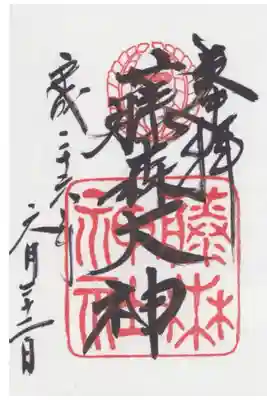 奉拝
藤森大神
藤森神社
平成二十六年
六月二十二日